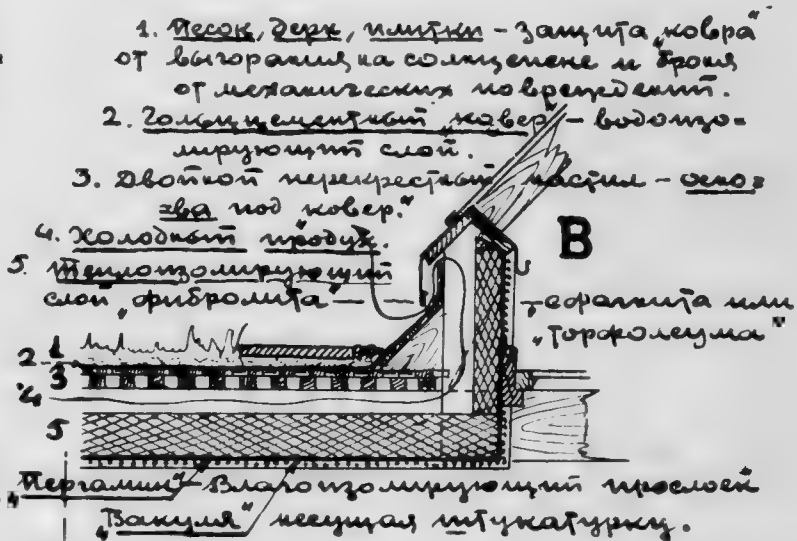 1. Песок, дерн, плитки – защита „ковра“
от выгорания на солнцепеке и броня
от механических повреждений.
2. Гольццементный „ковер“ – водоизо=
лирующий слой.
3. Двойной перекрестный настил – осно=
ва под „ковер.“
4. Холодный продух.
5. Теплоизолирующий
слой „фибролита“ – – – „сфагнита или
„торфолеума“
В
1
2
3
4
5
„Пергамин“ – Влагоизолирующий прослоек
„Вакуля“ несущая штукатурку.